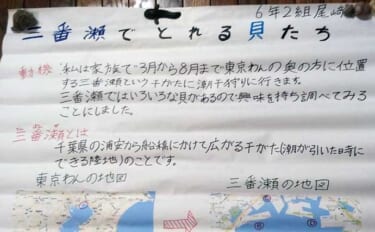 6年2組尾崎
三番瀬でとれる貝たち
動機 私は家族で3月から8月まで東京わんの奥の方に位置
する三番瀬という干がたに潮干狩りに行きます。
三番瀬ではいろいろな貝があるので興味を持ち調べてみる
ことにしました。
三番瀬とは
千葉県の浦安から船橋にかけて広がる干がた(潮が引いた時に
できる陸地)のことです。
東京わんの地図 三番瀬の地図